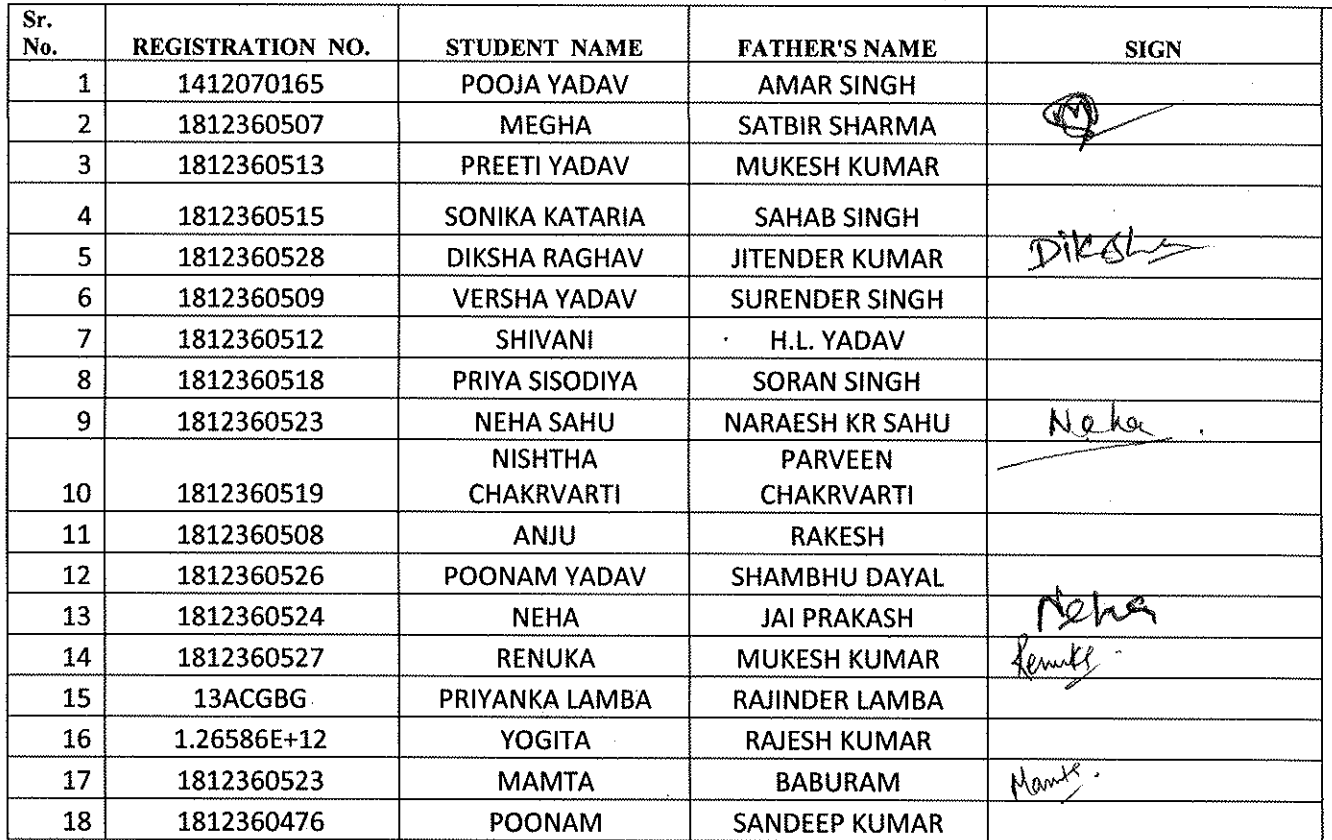 Sr.
No. REGISTRATION NO. STUDENT NAME FATHER'S NAME SIGN
1 1412070165 POOJA YADAV AMAR SINGH
2 1812360507 MEGHA SATBIR SHARMA M
3 1812360513 PREETI YADAV MUKESH KUMAR
4 1812360515 SONIKA KATARIA SAHAB SINGH
5 1812360528 DIKSHA RAGHAV JITENDER KUMAR Diksha
6 1812360509 VERSHA YADAV SURENDER SINGH
7 1812360512 SHIVANI H.L. YADAV
8 1812360518 PRIYA SISODIYA SORAN SINGH
9 1812360523 NEHA SAHU NARAESH KR SAHU Neha
NISHTHA PARVEEN
10 1812360519 CHAKRVARTI CHAKRVARTI
11 1812360508 ANJU RAKESH
12 1812360526 POONAM YADAV SHAMBHU DAYAL
13 1812360524 NEHA JAI PRAKASH Neha
14 1812360527 RENUKA MUKESH KUMAR Renuka
15 13ACGBG PRIYANKA LAMBA RAJINDER LAMBA
16 1.26586E+12 YOGITA RAJESH KUMAR
17 1812360523 MAMTA BABURAM Mamta
18 1812360476 POONAM SANDEEP KUMAR